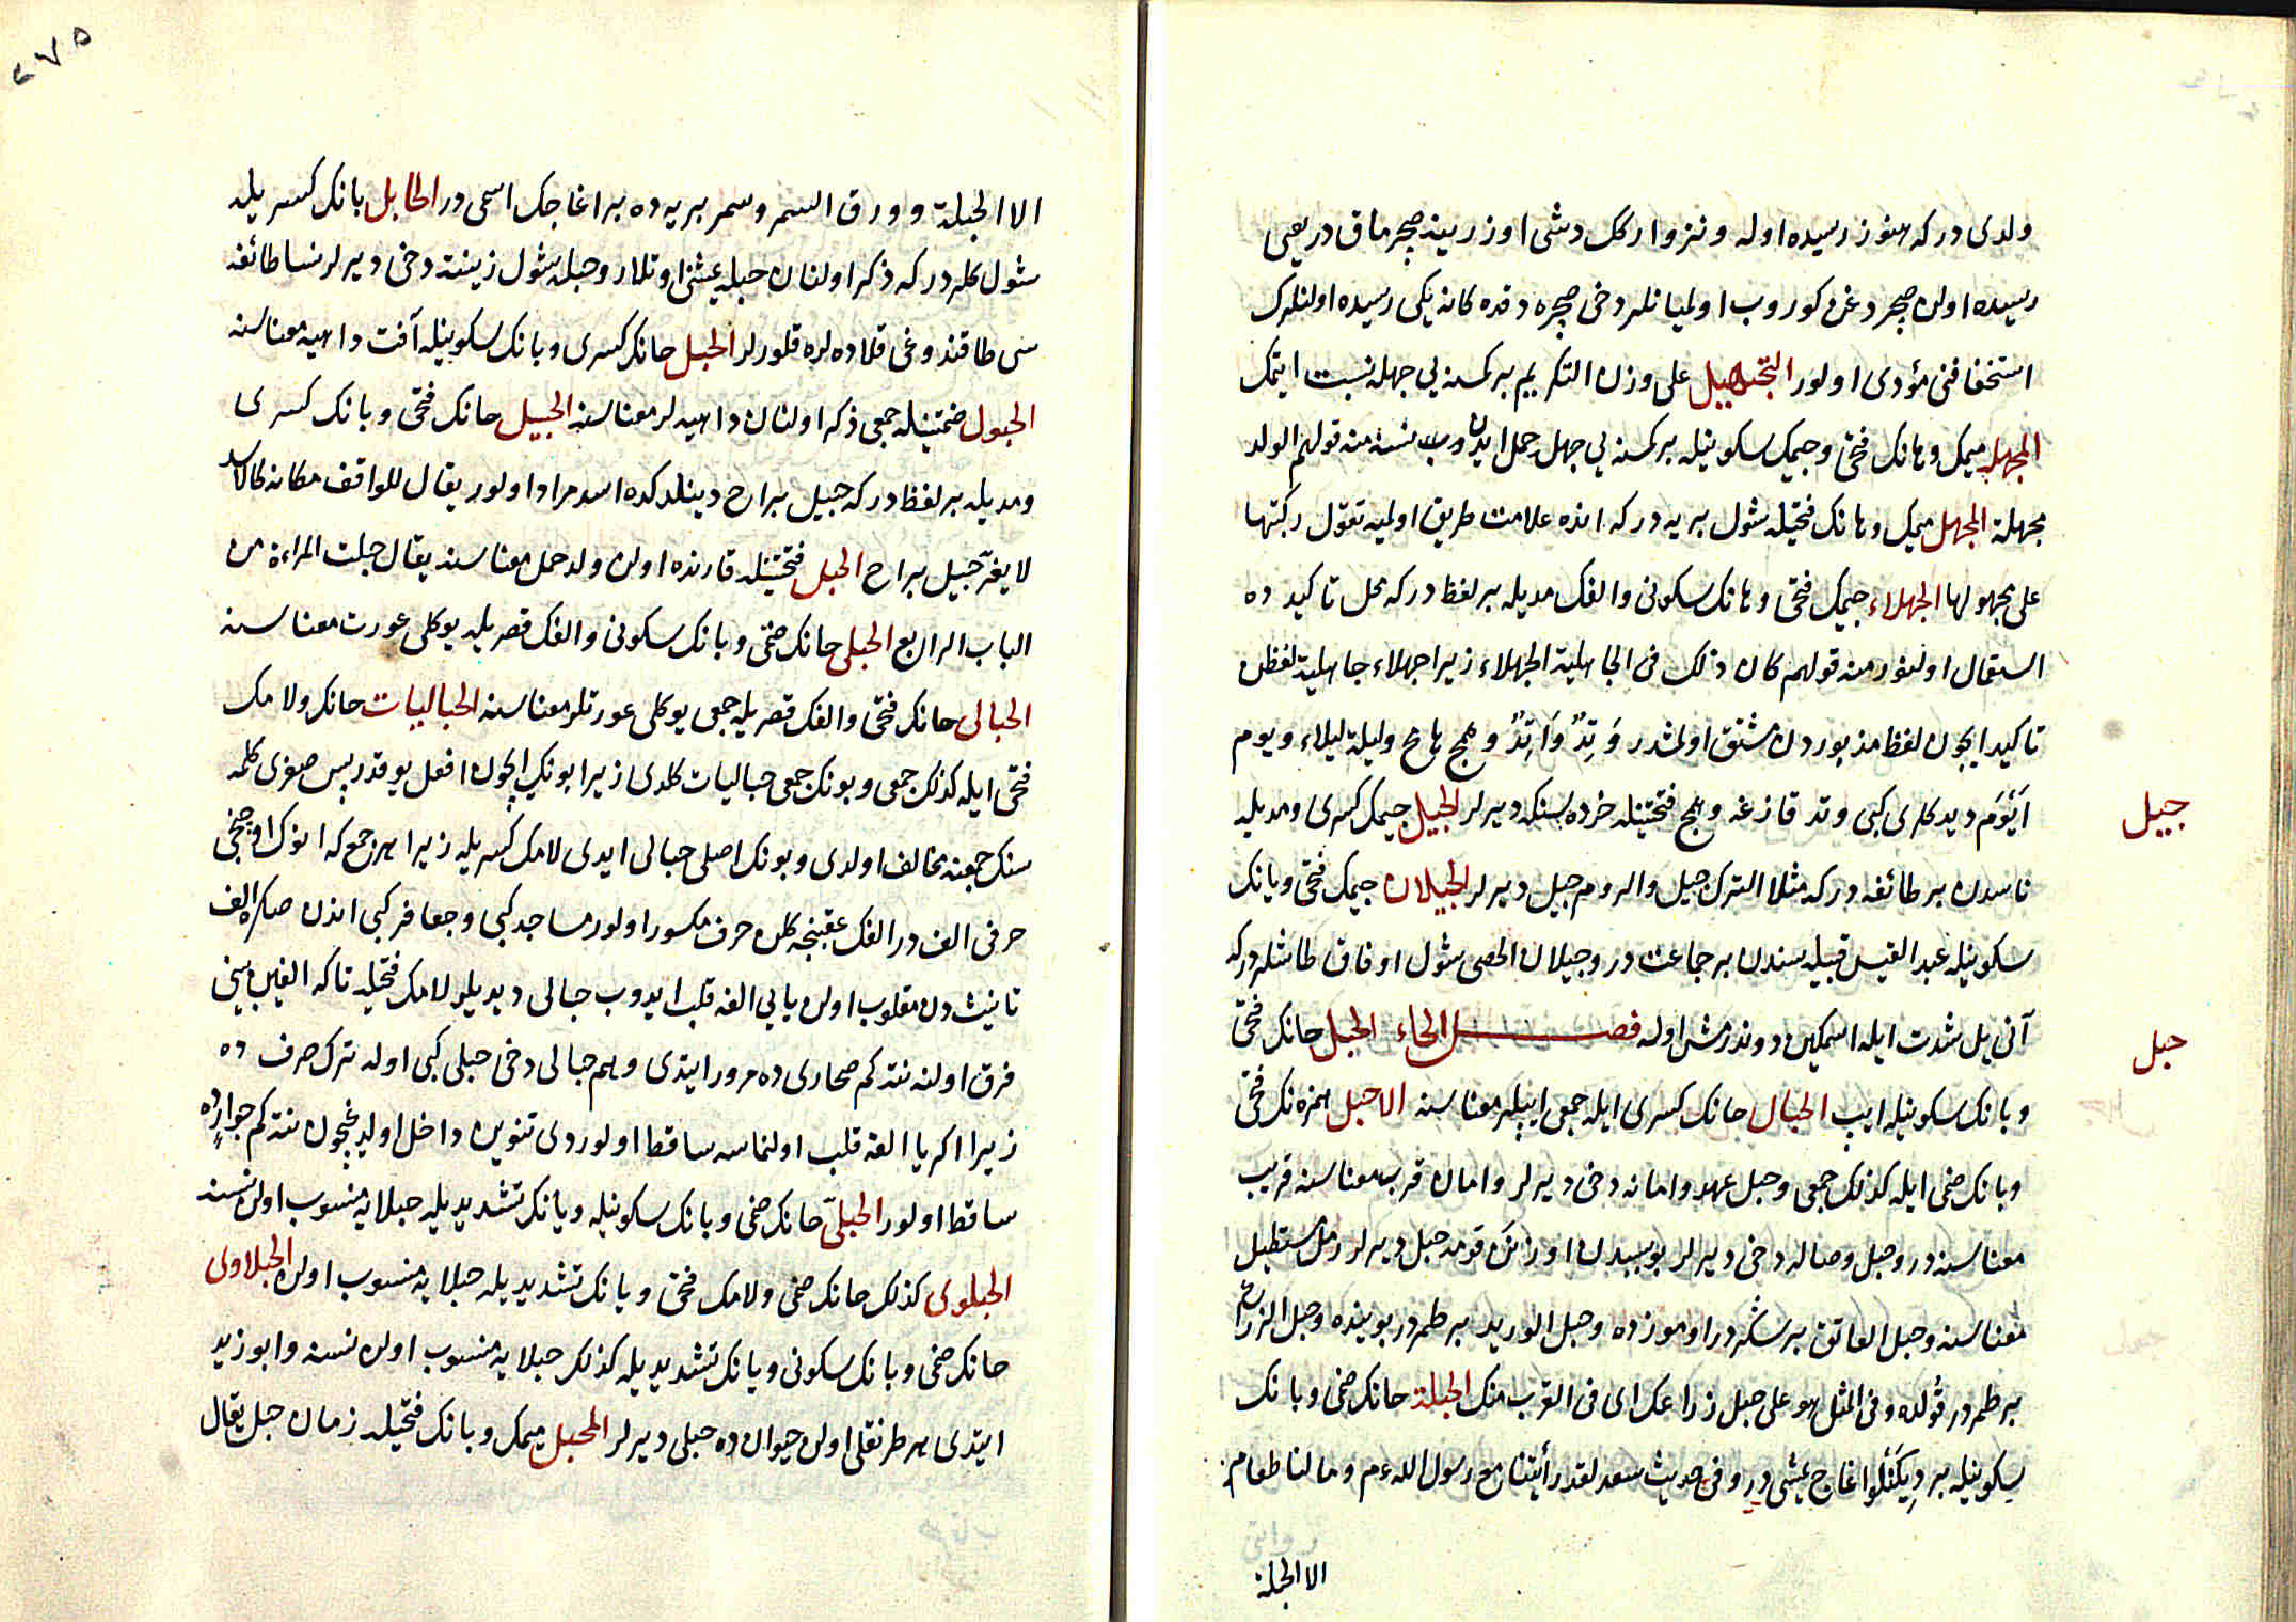 ولدی در که هنوز رسیده اوله و نزو ارکک دشی اوزرینه صچرماق در یعنی
رسیده اولن صچردغن کوروب اولمیانلر دخی صچره دقده کانه یکی رسیده اولنلرک
استخفافنی مؤدی اولور التجهیل علی وزن التکریم بر کمسنه یی جهله نسبت ایتمک
المجهله میمک و هانک فتحی و جیمک سکونیله بر کمسنه یی جهل حمل ایدن نسنه منه قولهم الولد
مجهلة المجهل میمک و هانک فتحیله شول بریه در که انده علامت طریق اولمیه تقول رکبتها
علی مجهولها الجهلاء جیمک فتحی و هانک سکونی و الفک مدیله بر لفظ در که محل تاکید ده
استعمال اولنور منه قولهم کان ذلک فی الجاهلیة الجهلاء زیرا جهلاء جاهلیة لفظن
تاکید ایچون لفظ مزبوردن مشتق اولمشدر وَتِدٌ وَاتِدٌ و همج هامج ولیلة لیلاء و یوم
اَیْوَم دیدکلری کبی وتد قازغه و همج فتحتینله خرده سنکه دیرلر الجیل جیمک کسری و مدیله
جیل
ناسدن بر طائفه در که مثلا الترک جیل والروم جیل دیرلر الجیلان جیمک فتحی و یانک
سکونیله عبد القیس قبیله سندن بر جماعت در و جیلان الحصی شول اوفاق طاشلر در که
آنی یل شدت ایله اسمکین دوندرمش اوله فصل الحاء الحبل حانک فتحی
حبل
و بانک سکونیله ایپ الحبال حانک کسری ایله جمعی ایپلر معناسنه الاحبل همزه نک فتحی
و بانک ضمی ایله کذلک جمعی و حبل عهد و امانه دخی دیرلر و امان قرب معناسنه قریب
معناسنه در و حبل وصاله دخی دیرلر بو سببدن اوزنک قومه حبل دیرلر رمل مستطیل
معناسنه و حبل العاتق بر سکردر اوموزده و حبل الورید بر طمردر بوینده و حبل الزراع
بر طمردر قولده و فی المثل هو علی حبل زراعک ای فی القرب منک الحبلة حانک ضمی و بانک
سکونیله بر دیکنلو اغاج یمشی در و فی حدیث سعد لقد رأیتنا مع رسول الله عم و ما لنا طعام
الا الحبلة
٢٧٥
الا الحبلة و ورق السمر و سمر بریه ده بر اغاجک اسمی در الحابل بانک کسریله
شول کله در که ذکر اولنان حبله یمشن اوتلار و حبله شول زینته دخی دیرلر نسا طائفه
سی طاقندوغی قلاده لره قلورلر الحبل حانک کسری و بانک سکونیله آفت داهیه معناسنه
الحبول ضمتینله جمعی ذکر اولنان داهیه لر معناسنه الحبیل حانک فتحی و بانک کسری
و مدیله بر لفظ در که حبیل براح دینلدکده اسد مراد اولور یقال للواقف مکانه کالاسد
لا یفرّ حبیل براح الحبل فتحتینله قارنده اولن ولد حمل معناسنه یقال حبلت المراءة من
الباب الرابع الحبلی حانک ضمی و بانک سکونی و الفک قصریله یوکلی عورت معناسنه
الحبالی حانک فتحی و الفک قصریله جمعی یوکلی عورتلر معناسنه الحبالیات حانک و لامک
فتحی ایله کذلک جمعی و بونک جمعی حبالیات کلدی زیرا بونک ایچون افعل یوقدر پس صغری کلمه
سنک جمعنه مخالف اولدی و بونک اصلی حبالی ایدی لامک کسریله زیرا هر جمع که انوک اوچنجی
حرفی الف در الفک عقبنجه کلن حرف مکسور اولور مساجد کبی و جعافر کبی اندن صکره الف
تانیث دن مقلوب اولن یایی الفه قلب ایدوب حبالی دیدیلر لامک فتحیله تا که الفین بینی
فرق اولنه نته کم صحاری ده مرور ایتدی و هم حبالی دخی حبلی کبی اوله ترک صرف ده
زیرا اکر یا الفه قلب اولنماسه ساقط اولوردی تنوین داخل اولدیغیچون نته کم جوارٍ ده
ساقط اولور الحبلیّ حانک ضمی و بانک سکونیله و یانک تشدیدیله حبلایه منسوب اولن نسنه
الحبلوی کذلک حانک ضمی و لامک فتحی و یانک تشدیدیله حبلایه منسوب اولن الحبلاوی
حانک ضمی و بانک سکونی و یانک تشدیدیله کذلک حبلایه منسوب اولن نسنه و ابو زید
ایتدی هر طرنقلی اولن حیوان ده حبلی دیرلر المحبل میمک و بانک فتحیله زمان حبل یقال